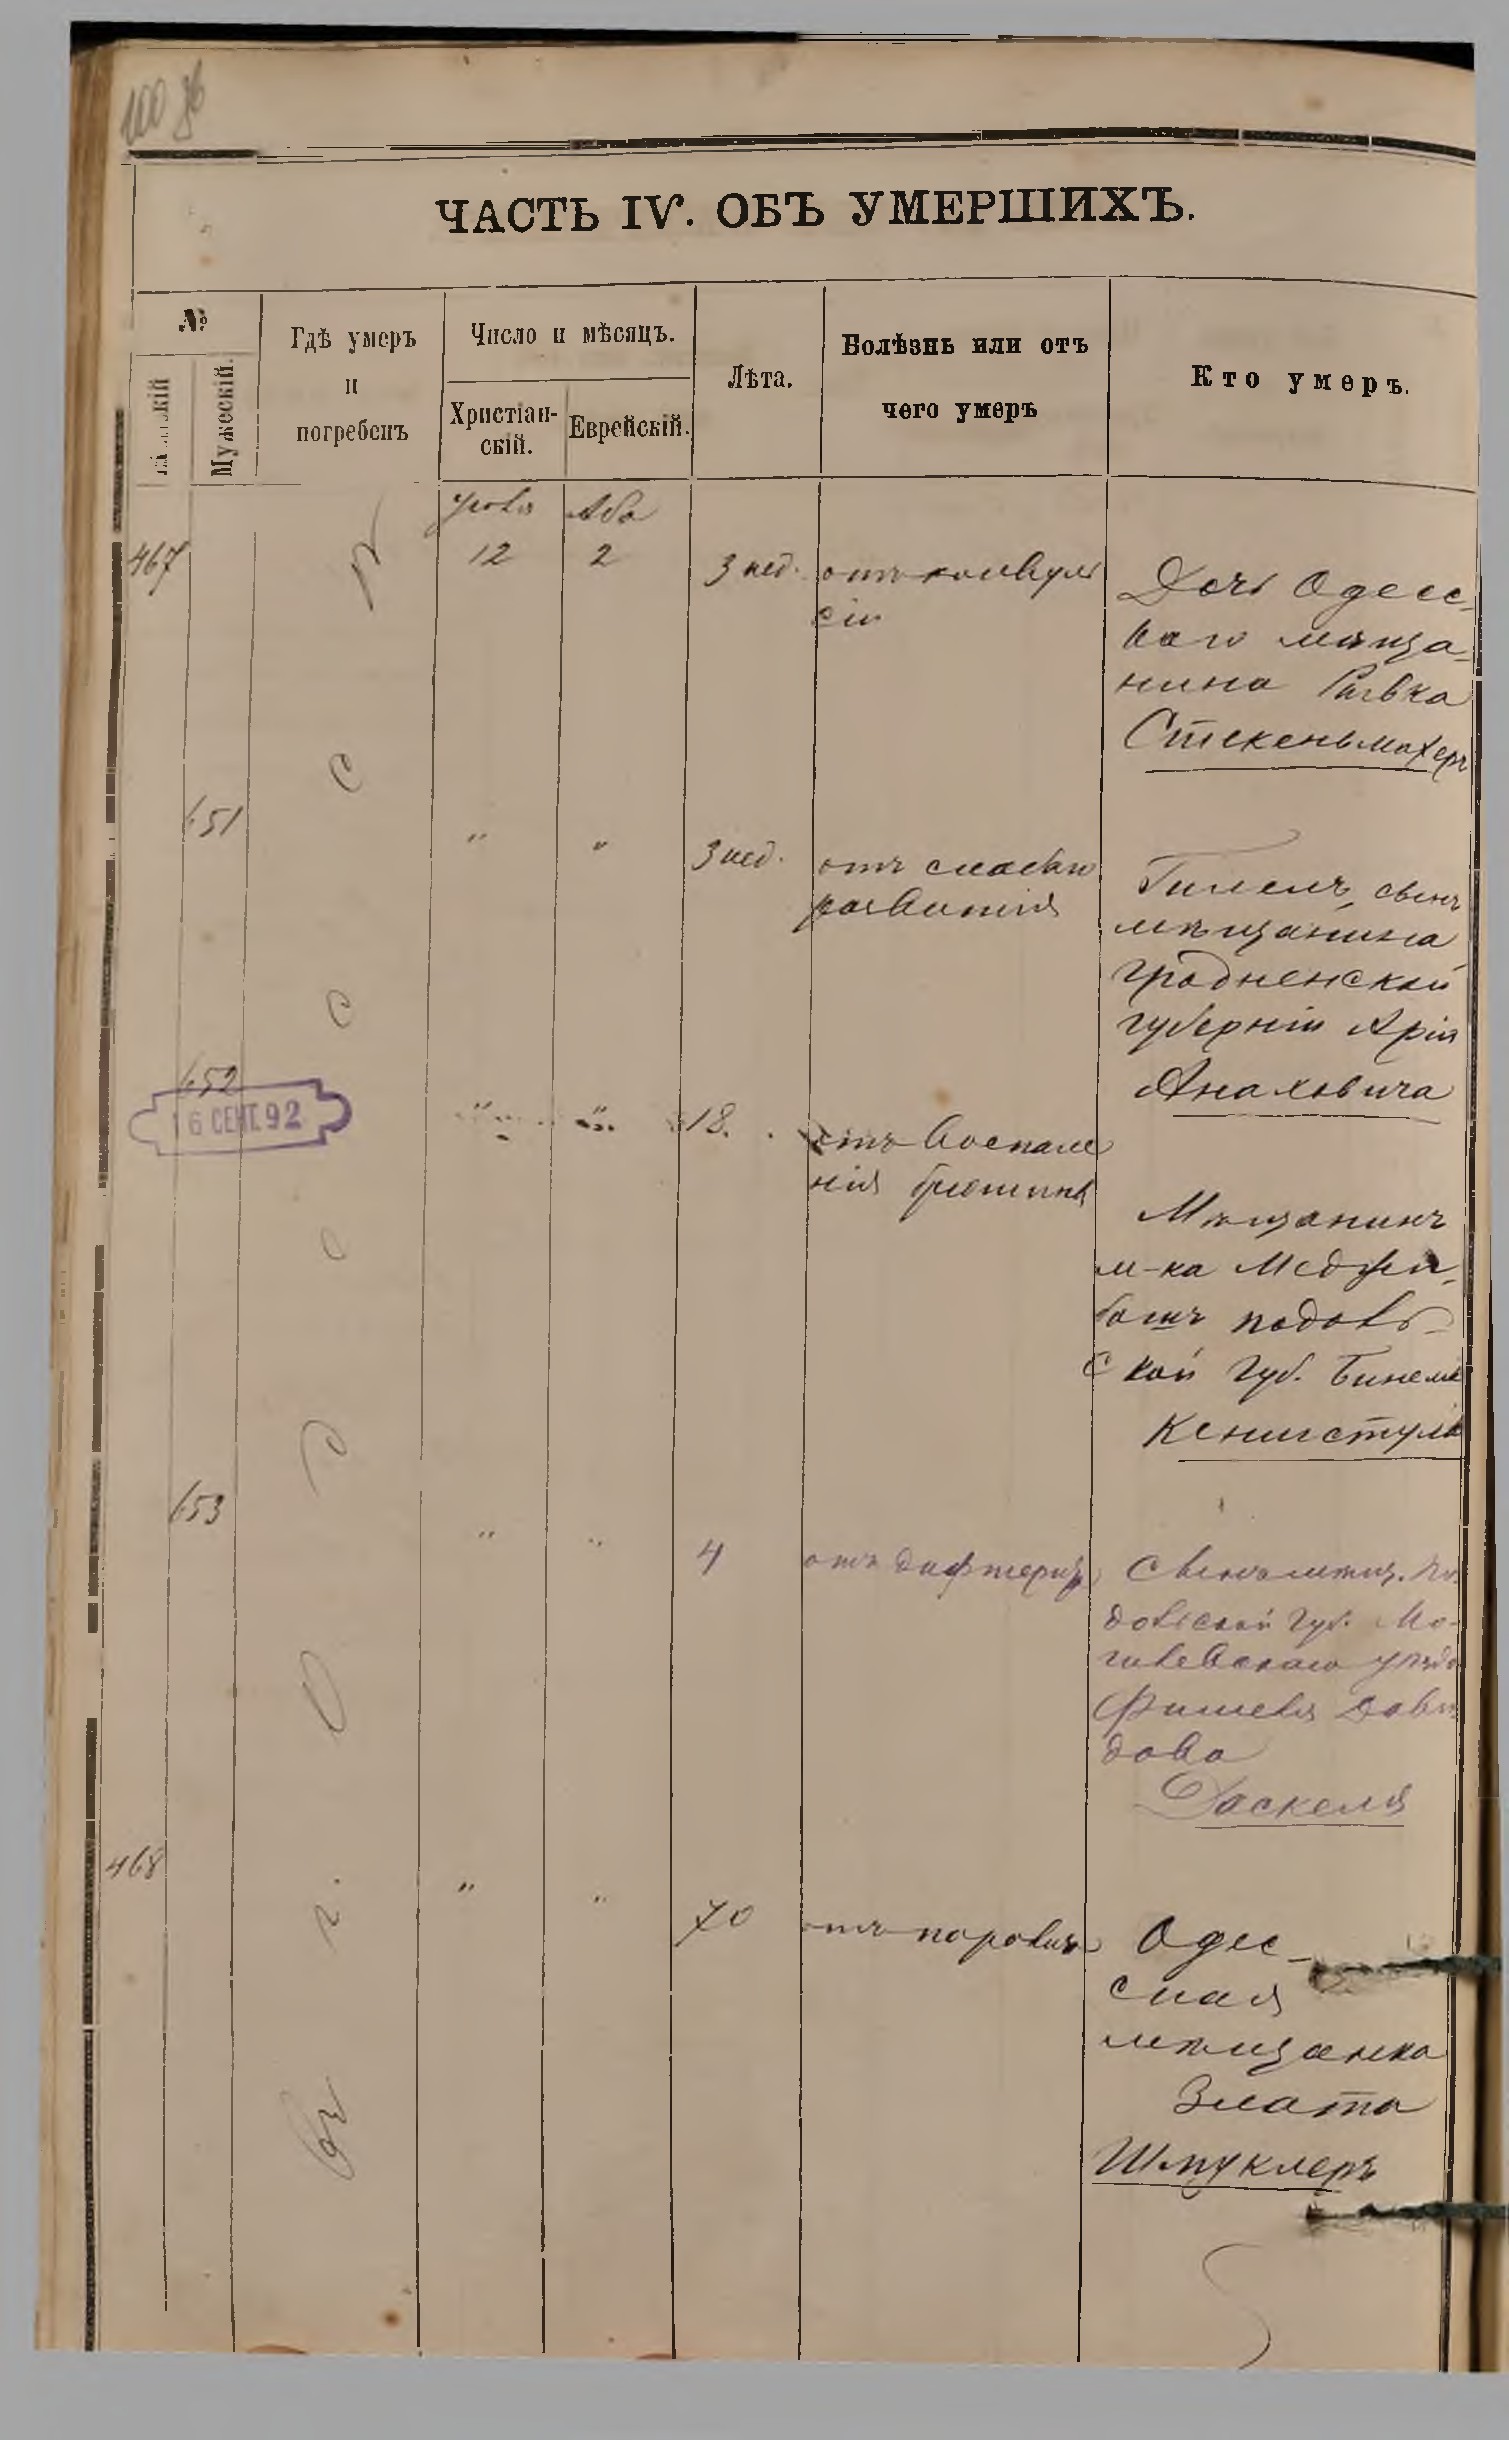 100 об
ЧАСТЬ IV. ОБЪ УМЕРШИХЪ.
№
Мужескій.
Гдѣ умеръ
и
погребенъ
Число и мѣсяцъ.
Христіан-
скій.
Еврейскій.
Лѣта.
Болѣзнь или отъ
чего умеръ
Кто умеръ.
Въ г. Одессѣ
Іюля Аба
467 12 2 3 нед. отъ конвуль
сіи
Дочь Одесс-
каго мѣща-
нина Ривка
Стекеньмахеръ
651 " " 3 нед. отъ слабаго
развитія
Гилель, сынъ
мѣщанина
Гродненской
губерніи Арія
Анаховича
652 " " 18. отъ воспале
нія брюшины
16 СЕНТ. 92
Мѣщанинъ
м-ка Меджи-
божъ Подоль-
ской губ. Бинемъ
653 " " 4 отъ дифтерита
Сынъ мѣщ. По-
дольской губ. Мо-
гилевскаго уѣзда
Фишеля Дави-
дова
Даскеля
468 " " 70 отъ
Одес-
ская
мѣщанка
Злата
Шмуклеръ